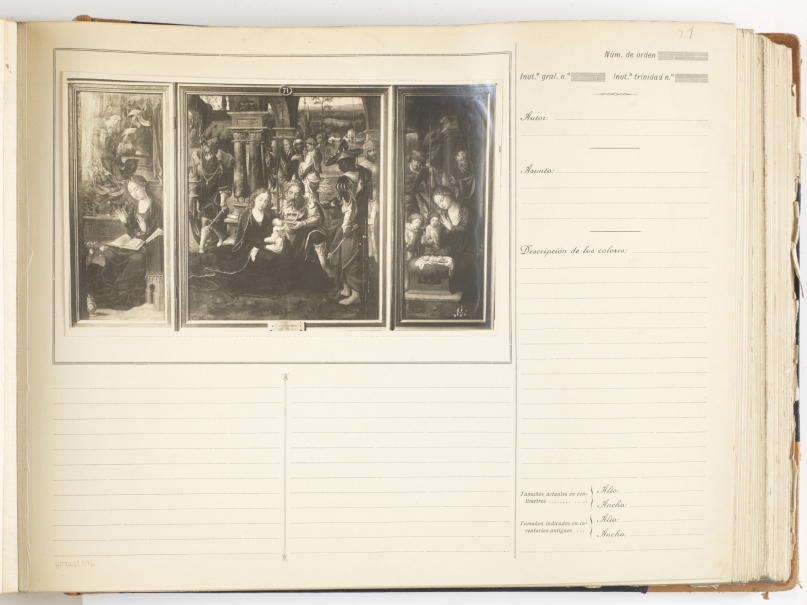 71
Núm. de orden
Invt.º gral. n.º Invt.º trinidad n.º
Autor:
Asunto:
Descripción de los colores:
Tamaños actuales en cen-
tímetros
Alto:
Ancho:
Tamaños indicados en in-
ventarios antiguos
Alto:
Ancho: